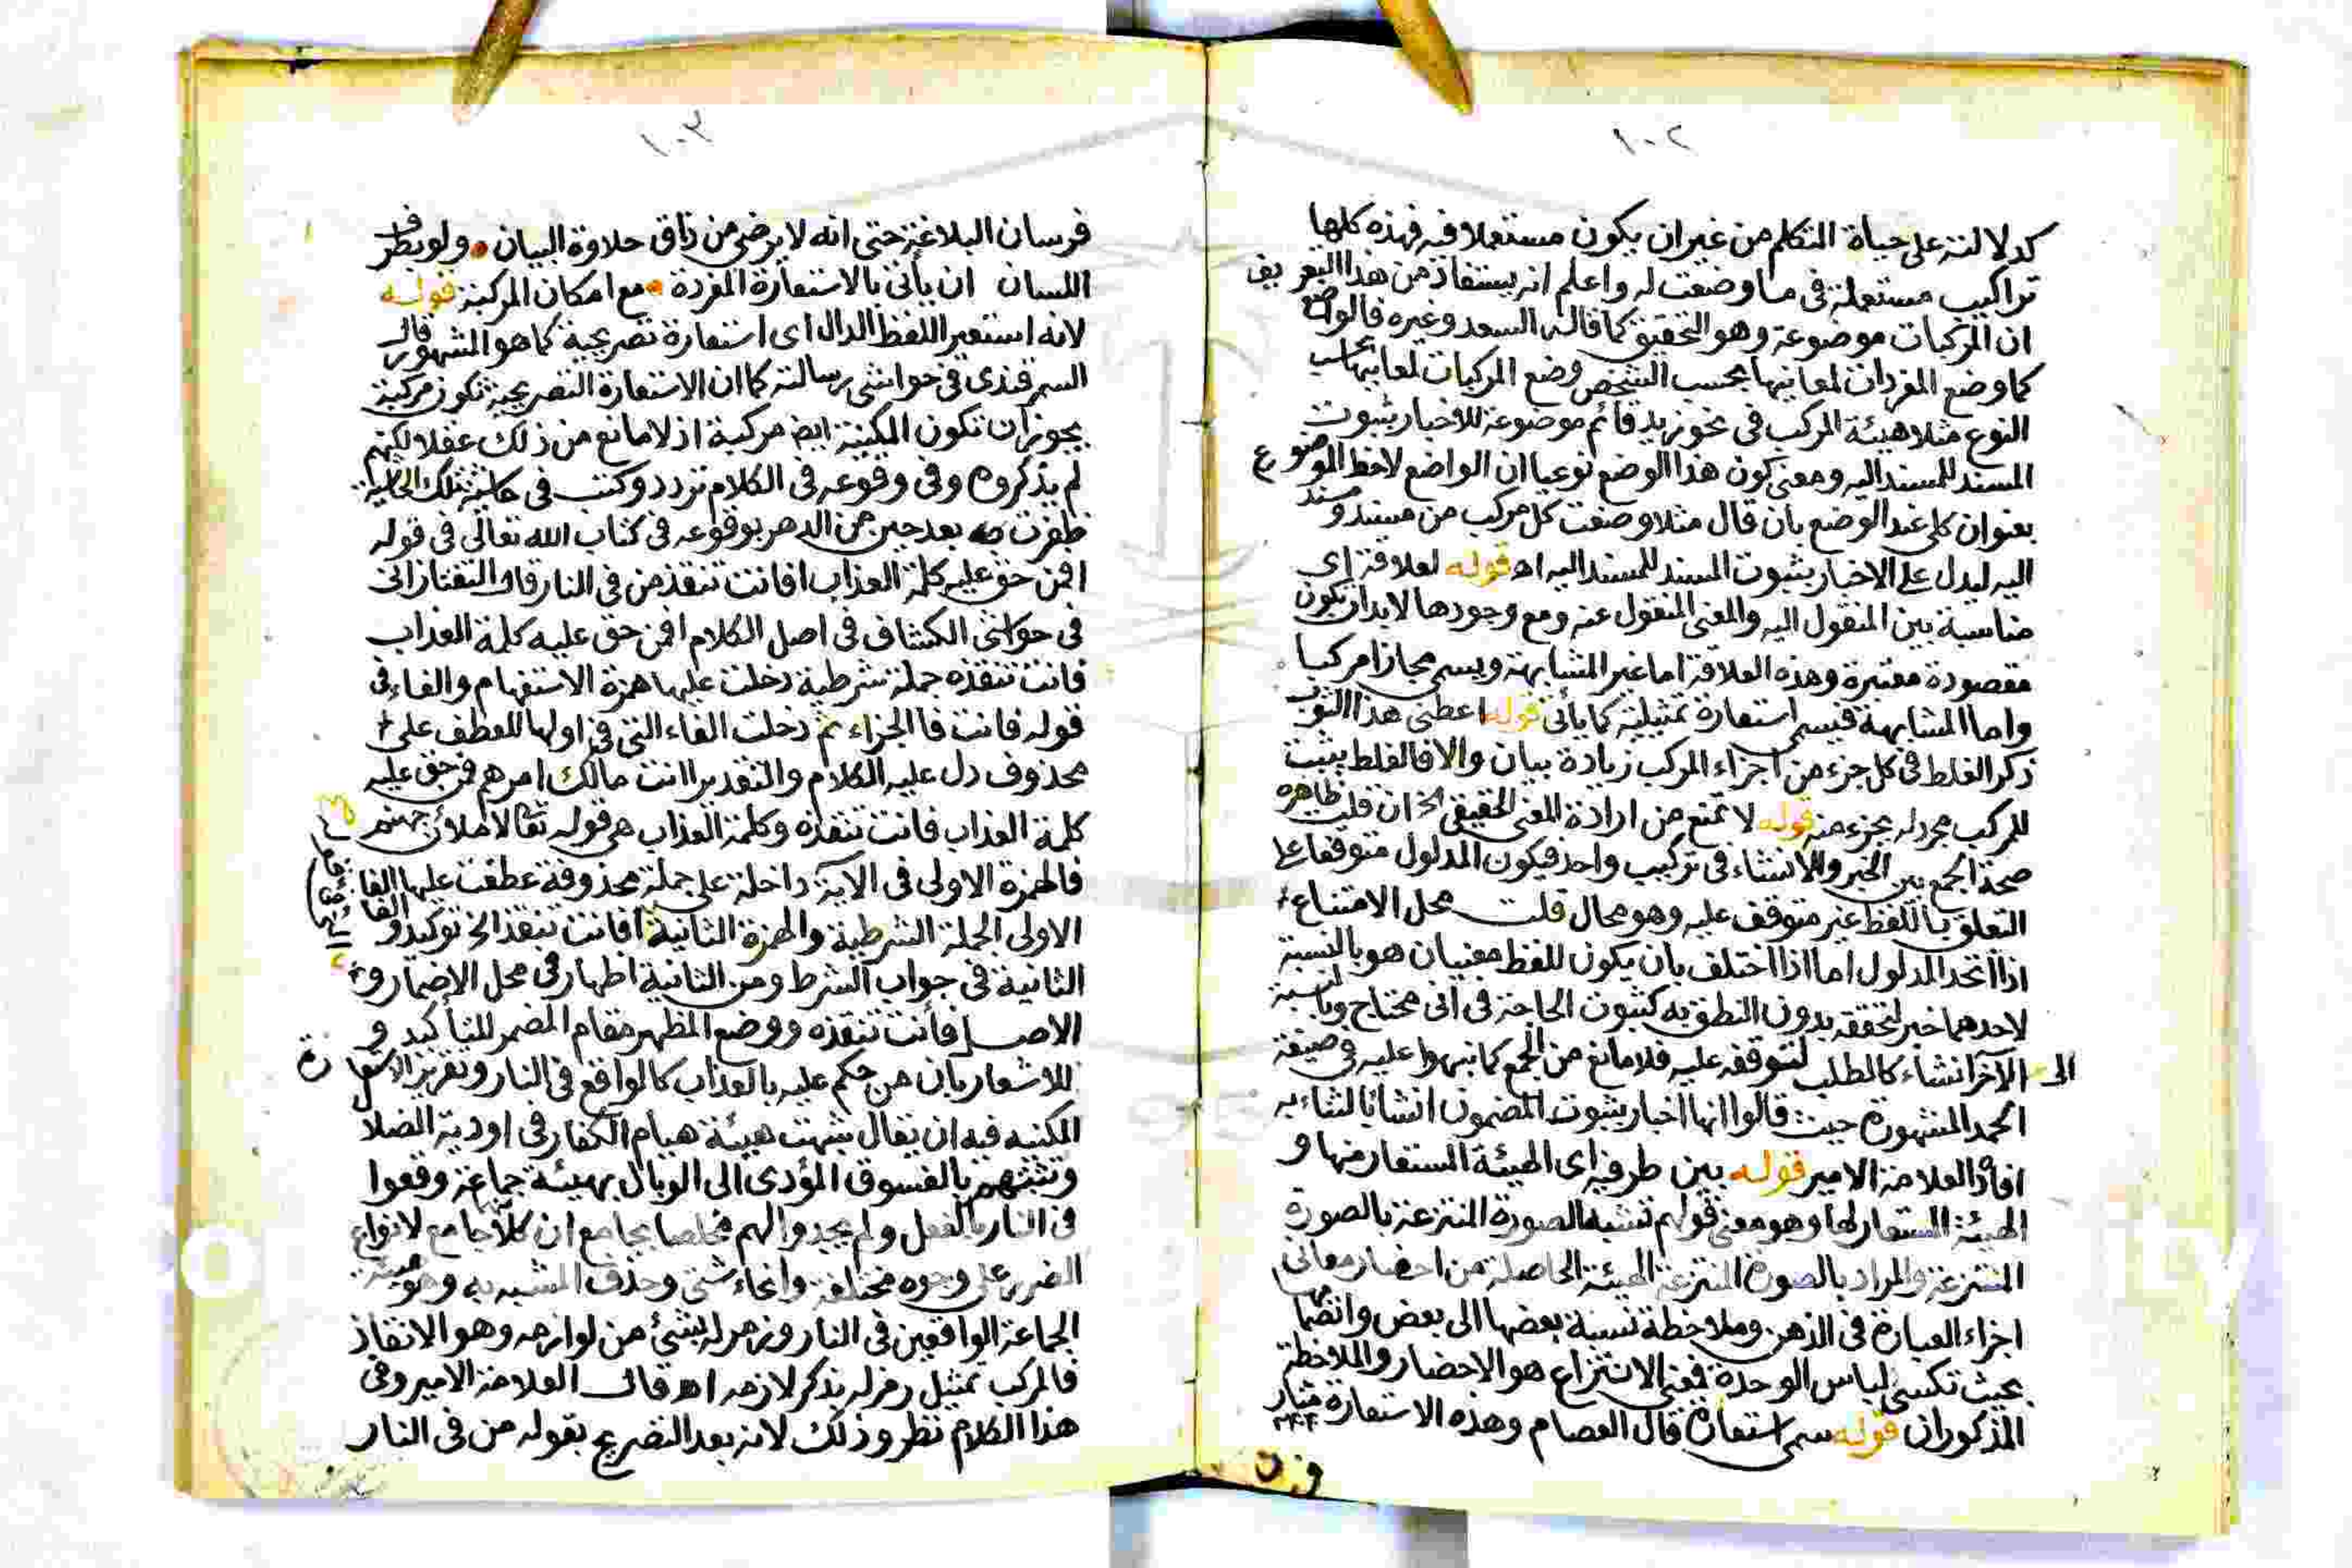 ١٠٢
كدلالته على حياة المتكلم من غير ان يكون مستعملا فيه فهذه كلها
تراكيب مستعملة في ما وضعت له واعلم انه يستفاد من هذا التعريف
ان المركبات موضوعة وهو التحقيق كما قاله السعد وغيره فالواضع
كما وضع المفردات لمعانيها بحسب الشخص وضع المركبات لمعانيها بحسب
النوع مثلا هيئة المركب في نحو زيد قائم موضوعة للاخبار بثبوت
المسند للمسند اليه ومعنى كون هذا الوضع نوعيا ان الواضع لاحظ الموضوع
بعنوان كلي عند الوضع بان قال مثلا وضعت كل مركب من مسند ومسند
اليه ليدل على الاخبار بثبوت المسند للمسند اليه اه قوله لعلاقة اى
مناسبة بين المنقول اليه والمعنى المنقول عنه ومع وجودها لابد ان تكون
مقصودة معتبرة وهذه العلاقة اما غير المشابهة ويسمى مجازا مركبا
واما المشابهة فيسمى استعارة تمثيلية كما يأتى قوله اعطنى هذا الثوب
ذكر الغلط فى كل جزء من اجزاء المركب زيادة بيان والا فالغلط يثبت
للمركب بجزء منه قوله لا تمنع من ارادة المعنى الحقيقى الخ ان قلت ظاهره
صحة الجمع بين الخبر والانشاء فى تركيب واحد فيكون المدلول متوقفا على
التعلق باللفظ غير متوقف عليه وهو محال قلت محل الامتناع
اذا اتحد المدلول اما اذا اختلف بان يكون للفظ معنيان هو بالنسبة
لاحدهما خبر لتحققه بدون النطق به كثبوت الحاجة فى انى محتاج وبالنسبة
الى الآخر انشاء كالطلب لتوقفه عليه فلا مانع من الجمع كما نبهوا عليه فى صيغة
الحمد المشهورة حيث قالوا انها اخبار بثبوت المضمون انشاء للثناء به
افاده العلامة الامير قوله بين طرفيه اى الهيئة المستعار منها و
الهيئة المستعار لها وهو معنى قولهم تشبيه الصورة المنتزعة بالصورة
المنتزعة والمراد بالصورة المنتزعة الهيئة الحاصلة من احضار معانى
اجزاء العبارة فى الذهن وملاحظة نسبة بعضها الى بعض وانضمامها
بحيث تكتسى لباس الوحدة فمعنى الانتزاع هو الاحضار والملاحظة
المذكوران قوله سمى استعارة قال العصام وهذه الاستعارة مثار
١٠٣
فرسان البلاغة حتى انه لا يرضى من ذاق حلاوة البيان ولو بطرف
اللسان ان يأتى بالاستعارة المفردة مع امكان المركبة قوله
لانه استعير اللفظ الدال اى استعارة تصريحية كما هو المشهور قال
السمرقندى فى حواشى رسالته كما ان الاستعارة التصريحية تكون مركبة
يجوز ان تكون المكنية ايضا مركبة اذ لا مانع من ذلك عقلا لكنهم
لم يذكروه وفى وقوعه فى الكلام تردد وكتب فى حاشية تلك الحاشية
ظفرت به بعد حين من الدهر بوقوعه فى كتاب الله تعالى فى قوله
افمن حق عليه كلمة العذاب افانت تنقذ من فى النار قال التفتازانى
فى حواشى الكشاف فى اصل الكلام افمن حق عليه كلمة العذاب
فانت تنقذه جملة شرطية دخلت عليها همزة الاستفهام والفاء فى
قوله فانت فاء الجزاء ثم دخلت الفاء التى فى اولها للعطف على
محذوف دل عليه الكلام والتقدير اانت مالك امرهم فمن حق عليه
كلمة العذاب فانت تنقذه وكلمة العذاب هى قوله تعالى لاملان جهنم
فالهمزة الاولى فى الآية داخلة على جملة محذوفة عطفت عليها الفاء
الاولى الجملة الشرطية والهمزة الثانية افانت تنقذ الخ توكيد والفاء
الثانية فى جواب الشرط ومن الثانية اظهار فى محل الاضمار و
الاصل فأنت تنقذه ووضع المظهر مقام المضمر للتأكيد و
للاشعار بان من حكم عليه بالعذاب كالواقع فى النار وتقرير الاستعارة
المكنية فيه ان يقال شبهت هيئة هيام الكفار فى اودية الضلال
وتشبثهم بالفسوق المؤدى الى الوبال بهيئة جماعة وقعوا
فى النار بالفعل ولم يجدوا لهم مخلصا بجامع ان كلا جامع لانواع
الضرر على وجوه مختلفة وانحاء شتى وحذف المشبه به وهو هيئة
الجماعة الواقعين فى النار ورمز له بشئ من لوازمه وهو الانقاذ
فالمركب تمثيل رمز له بذكر لازمه اه قال العلامة الامير وفى
هذا الكلام نظر وذلك لانه بعد التصريح بقوله من فى النار